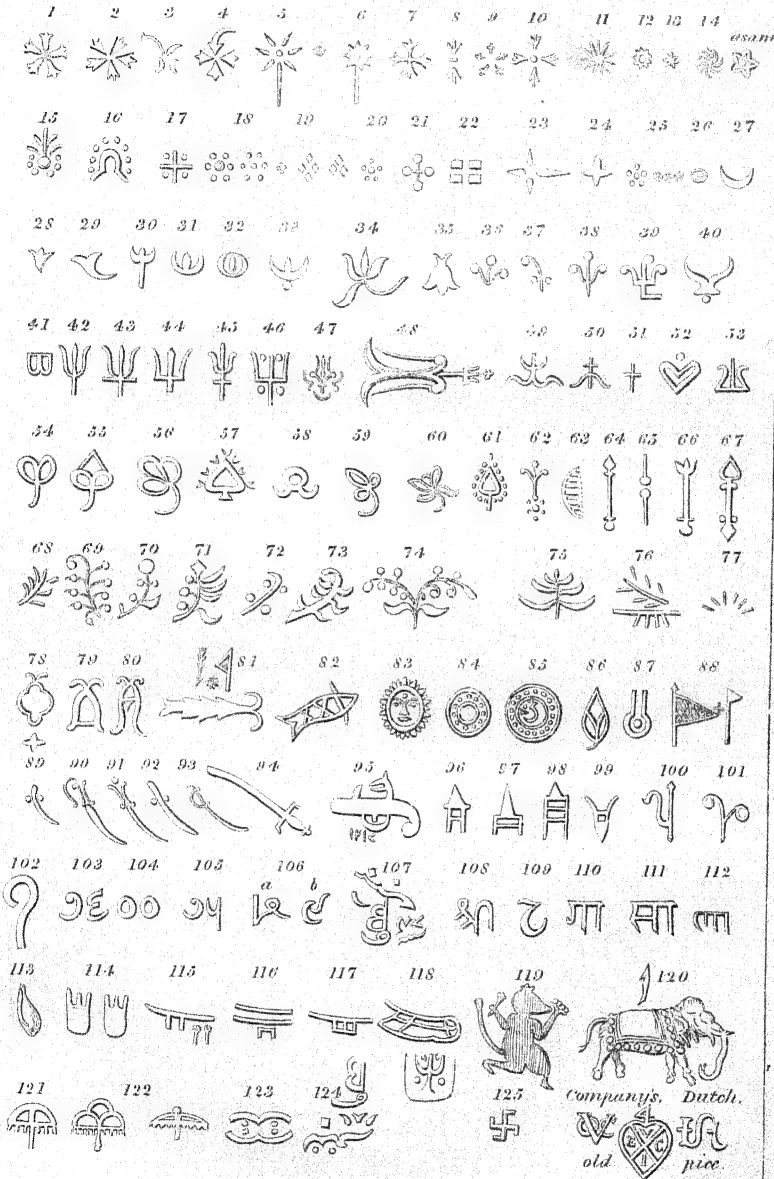 1 2 3 4 5 6 7 8 9 10 11 12 13 14
asam
15 16 17 18 19 20 21 22 23 24 25 26 27
28 29 30 31 32 33 34 35 36 37 38 39 40
41 42 43 44 45 46 47 48 49 50 51 52 53
54 55 56 57 58 59 60 61 62 63 64 65 66 67
68 69 70 71 72 73 74 75 76 77
78 79 80 81 82 83 84 85 86 87 88
89 90 91 92 93 94 95 96 97 98 99 100 101
102 103 104 105 106 107 108 109 110 111 112
a b
113 114 115 116 117 118 119 120
121 122 123 124 125 Company's, Dutch.
old pice.